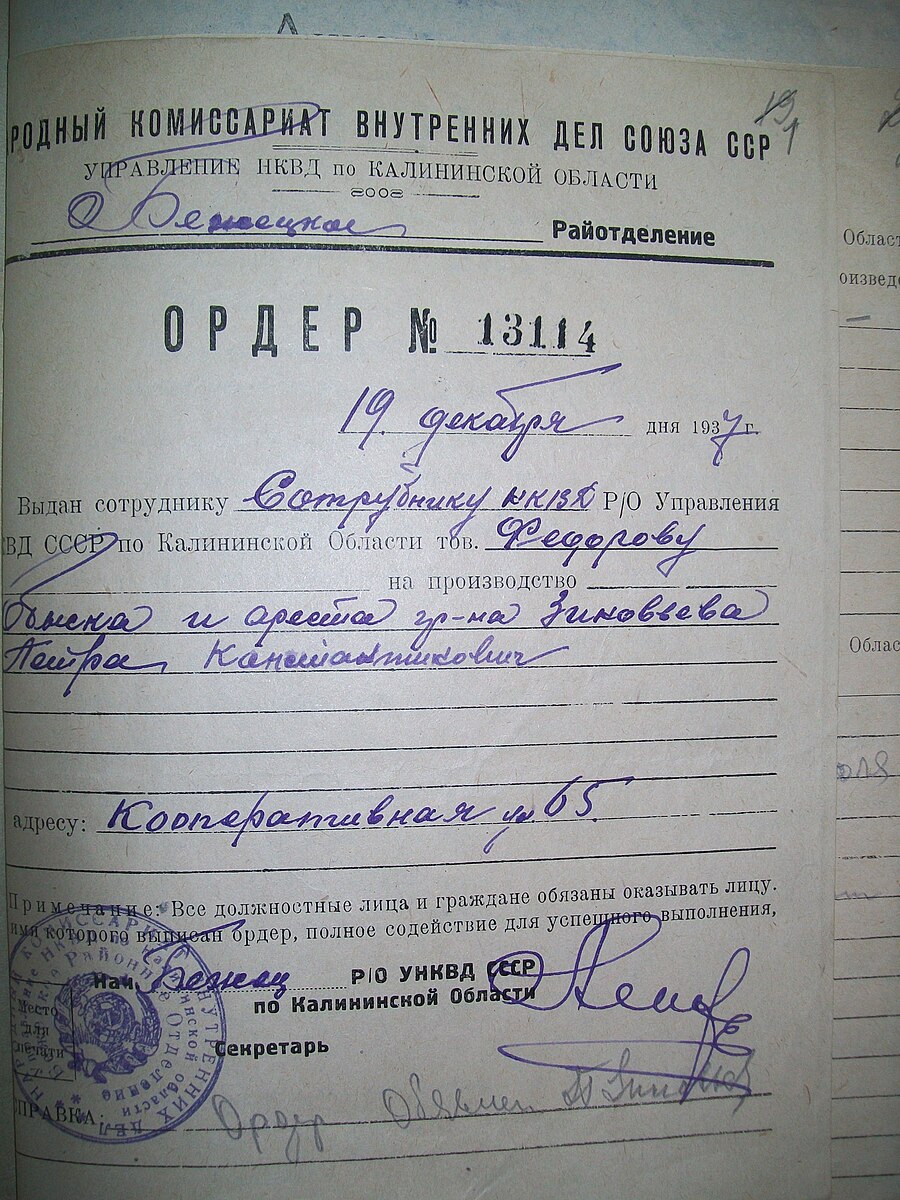 19
1
РОДНЫЙ КОМИССАРИАТ ВНУТРЕННИХ ДЕЛ СОЮЗА ССР
УПРАВЛЕНИЕ НКВД по КАЛИНИНСКОЙ ОБЛАСТИ
Бежецкое Райотделение
ОРДЕР № 13114
19 декабря дня 1937 г.
Выдан сотруднику Сотруднику НКВД Р/О Управления
ВД СССР по Калининской Области тов. Федорову
на производство
Обыска и ареста гр-на Зиновьева
Петра Константинович
адресу: Кооперативная ул 65
Примечание: Все должностные лица и граждане обязаны оказывать лицу.
имя которого выписан ордер, полное содействие для успешного выполнения,
Нач. Бежец Р/О УНКВД СССР
по Калининской Области
Место
для
печати
Секретарь
ПРАВКА: Ордер Объявлен П Зиновьев
Област
оизведе
Облас